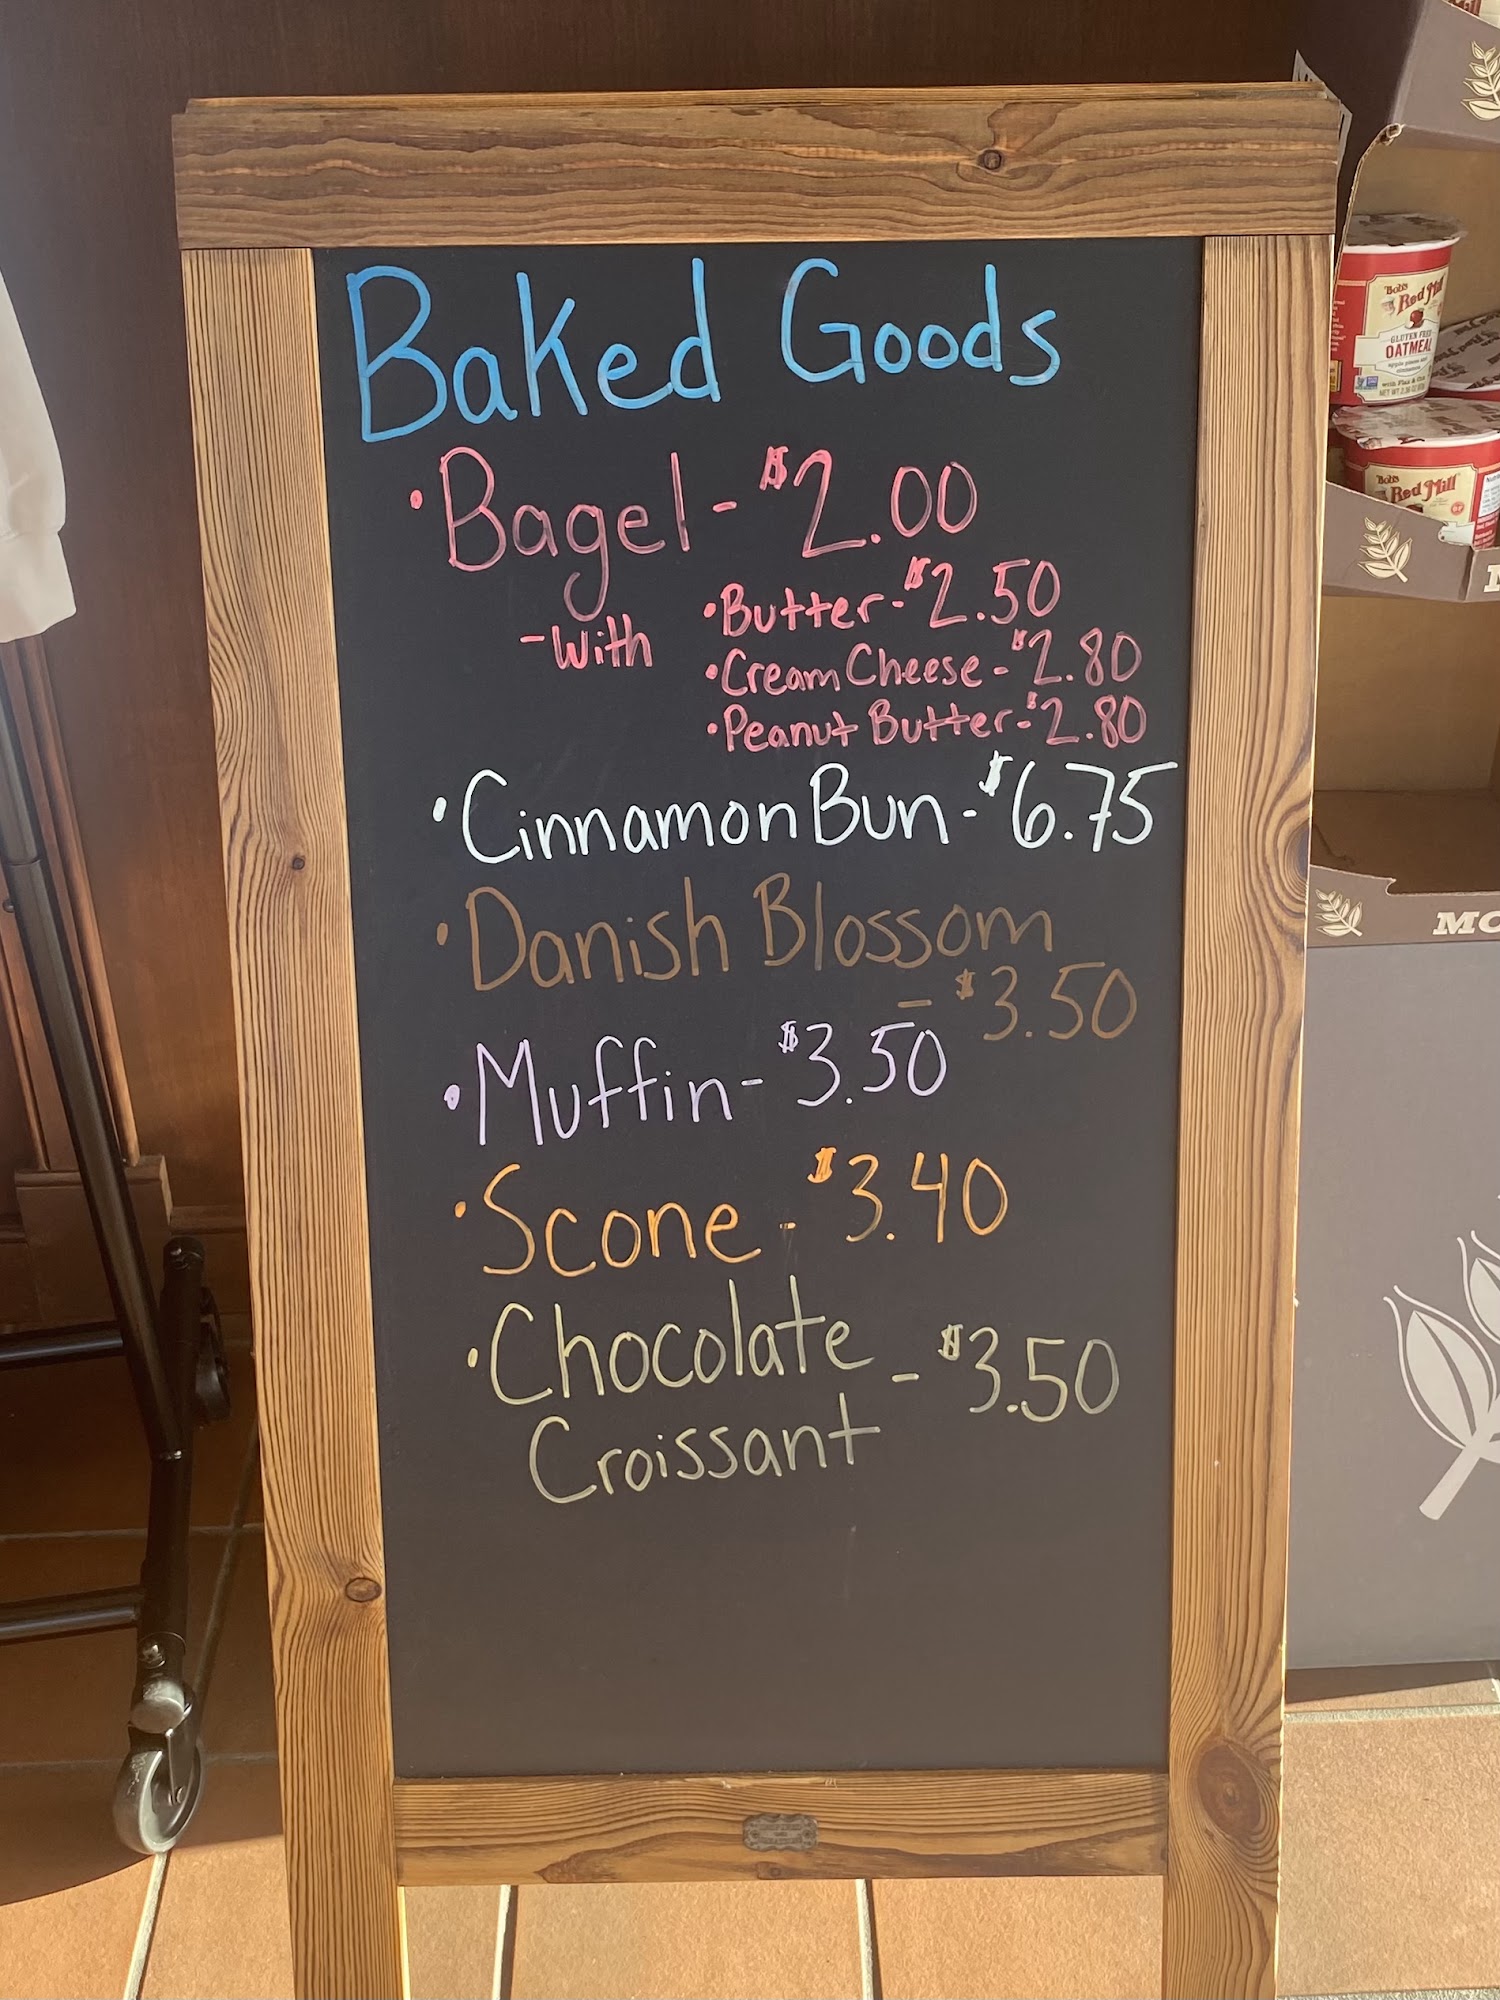 Baked Goods
• Bagel - $2.00
- with
• Butter - $2.50
• Cream Cheese - $2.80
• Peanut Butter - $2.80
• Cinnamon Bun - $6.75
• Danish Blossom
- $3.50
• Muffin - $3.50
• Scone - $3.40
• Chocolate - $3.50
Croissant
Bob's
Red Mill
GLUTEN FREE
OATMEAL
Bob's
Red Mill